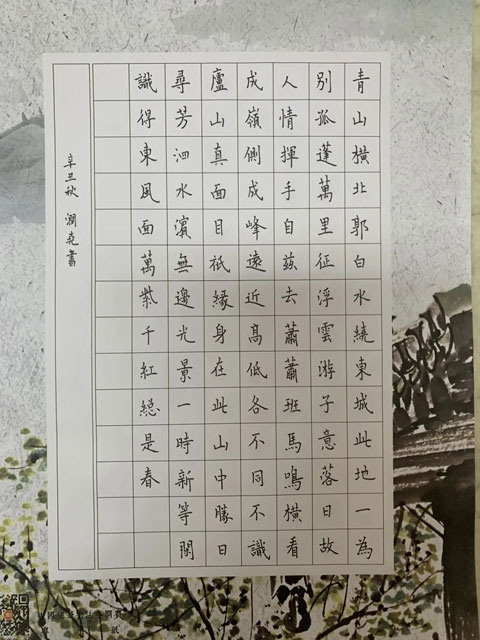 青山橫北郭白水繞東城此地一為
別孤蓬萬里征浮雲游子意落日故
人情揮手自茲去蕭蕭班馬鳴橫看
成嶺側成峰遠近高低各不同不識
廬山真面目祇緣身在此山中勝日
尋芳泗水濱無邊光景一時新等閒
識得東風面萬紫千紅總是春
辛丑秋 潤堯書